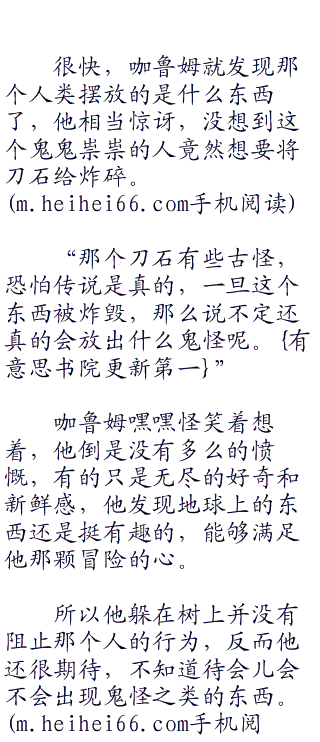 很快，咖鲁姆就发现那
个人类摆放的是什么东西
了，他相当惊讶，没想到这
个鬼鬼祟祟的人竟然想要将
刀石给炸碎。
(m.heihei66.com手机阅读)
“那个刀石有些古怪，
恐怕传说是真的，一旦这个
东西被炸毁，那么说不定还
真的会放出什么鬼怪呢。{有
意思书院更新第一}”
咖鲁姆嘿嘿怪笑着想
着，他倒是没有多么的愤
慨，有的只是无尽的好奇和
新鲜感，他发现地球上的东
西还是挺有趣的，能够满足
他那颗冒险的心。
所以他躲在树上并没有
阻止那个人的行为，反而他
还很期待，不知道待会儿会
不会出现鬼怪之类的东西。
(m.heihei66.com手机阅